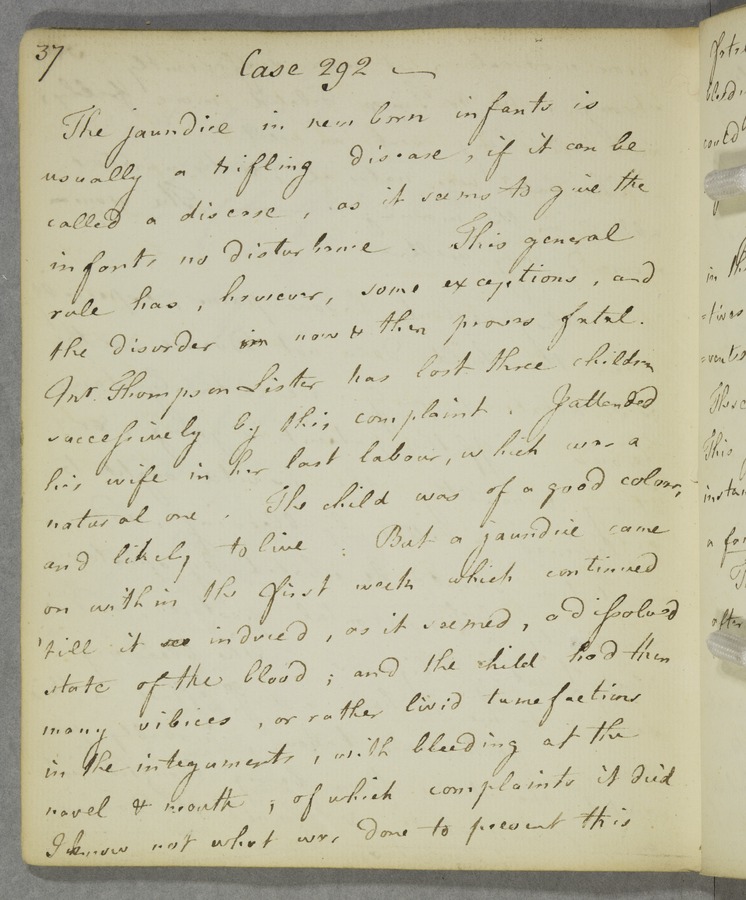 37
Case 292 —
The jaundice in new born infants is
usually a trifling disease, if it can be
called a disease, as it seems to give the
infants no disturbance. This general
rule has, however, some exceptions, and
the disorder in now & then proves fatal.
Mr. Thompson Lister has lost three children
successively by this complaint. I attended
his wife in her last labour, which was a
natural one. The child was of a good colour,
and likely to live: But a jaundice came
on within the first week which continued
'till it induced, as it seemed, a dissolved
state of the blood; and the child had then
many vibices, or rather livid tumefactions
in the integuments, with bleeding at the
navel & mouth; of which complaints it died
I know not what was done to prevent this